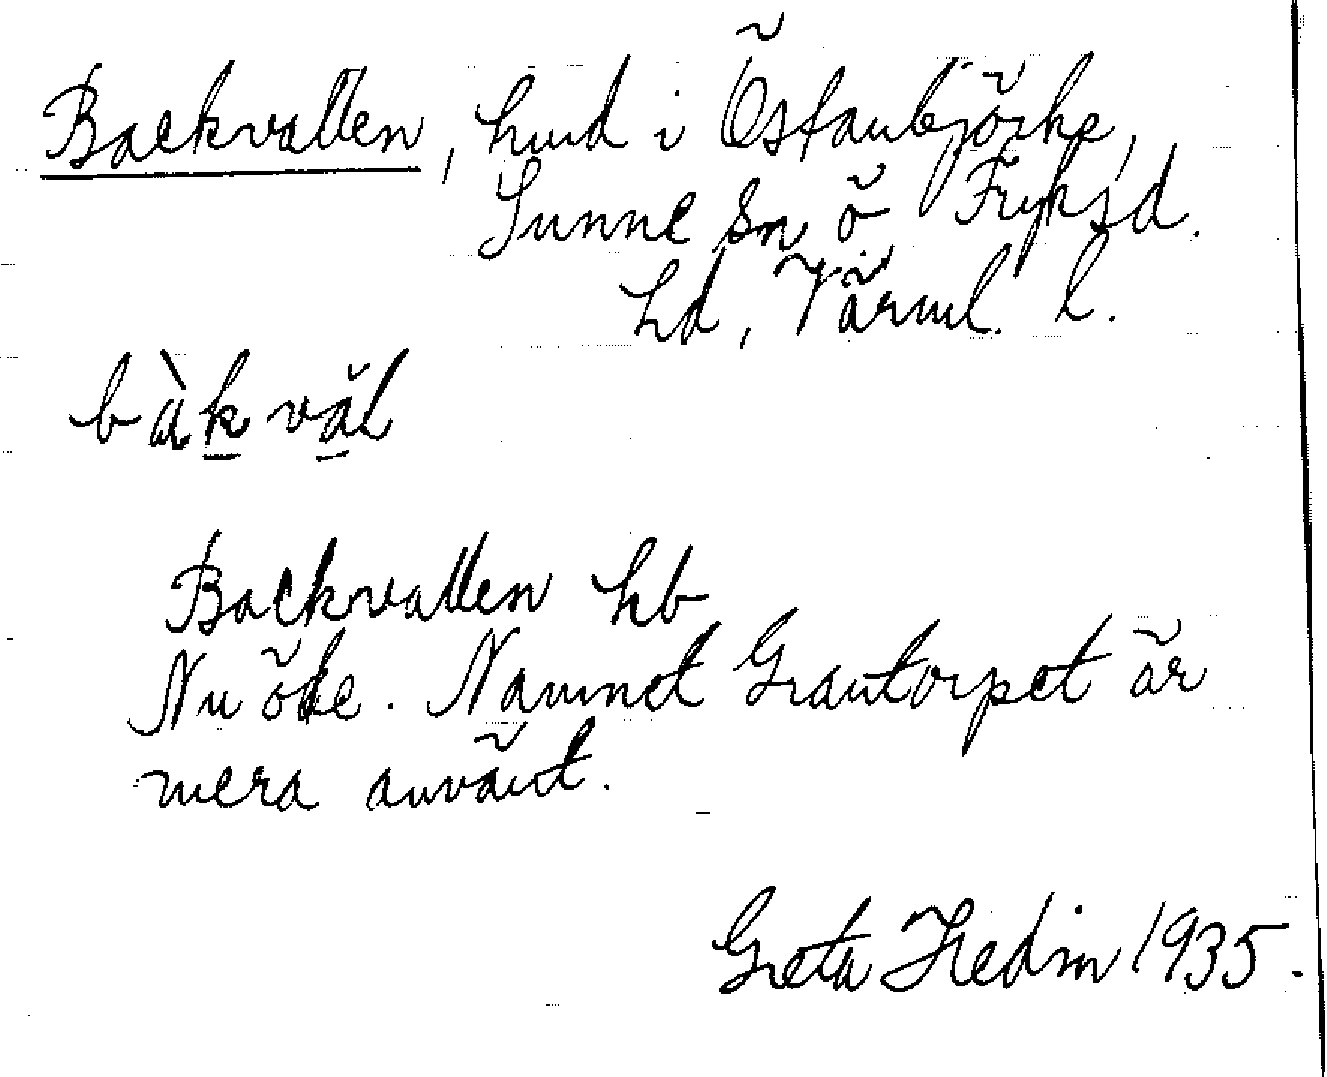 Backvallen, hmd i Östanbjörke,
Sunne sn Ö Fryksd.
hd, Värml. l.
bàkvăl
Backvallen hb
Nu öde. Namnet Grantorpet är
mera använt.
Greta Hedin 1935.